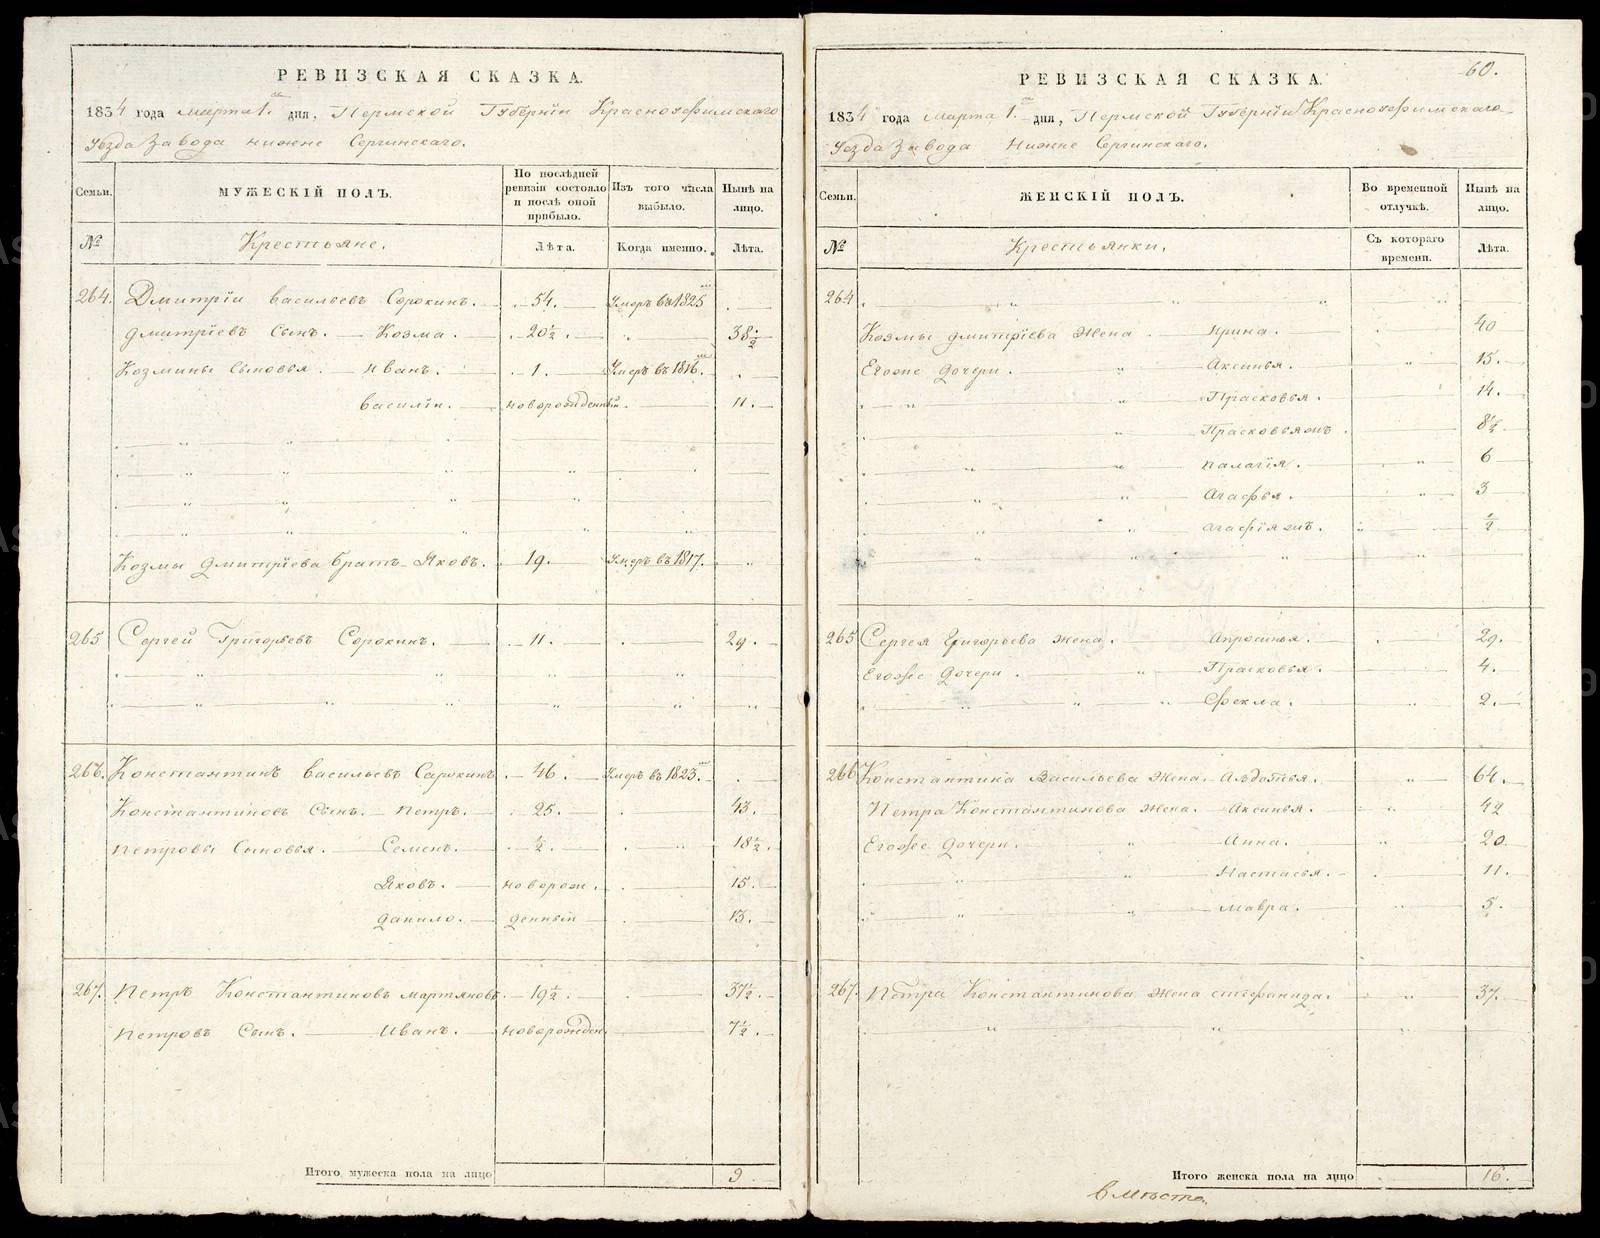 РЕВИЗСКАЯ СКАЗКА.
1834 года марта 1. дня, Пермской Губернїи Красноуфимскаго
Уезда Завода Нижне Сергинскаго.
Семьи.
МУЖЕСКІЙ ПОЛЪ.
По послѣдней ревизіи состояло и послѣ оной прибыло.
Изъ того числа выбыло.
Нынѣ на лицо.
№
Крестьяне.
Лѣта.
Когда именно.
Лѣта.
264. Дмитрїи Васильевъ Сорокинъ. 54. Умеръ въ 1825
Дмитрїевъ Сынъ. Козма. 20½. 38½
Козмины Сыновья. Иванъ. 1. Умеръ въ 1816.
Василїи. новорожденный. 11.
Козмы Дмитрїева братъ Яковъ. 19. Умеръ въ 1817.
265 Сергей Григорьевъ Сорокинъ. 11. 29.
266. Константинъ Васильевъ Сарокинъ 46. Умеръ въ 1823.
Константиновъ Сынъ. Петръ. 25. 43.
Петровы Сыновья. Семенъ. ½. 18½.
Яковъ. новорож. 15.
Данило. денныи 13.
267. Петръ Константиновъ Мартяновъ. 19½. 37½.
Петровъ Сынъ. Иванъ. новорожден. 7½.
Итого мужеска пола на лицо 9
60.
РЕВИЗСКАЯ СКАЗКА.
1834 года марта 1. дня, Пермской Губернїи Красноуфимскаго
Уезда Завода Нижне Сергинскаго.
Семьи.
ЖЕНСКІЙ ПОЛЪ.
Во временной отлучкѣ.
Нынѣ на лицо.
№
Крестьянки.
Съ котораго времени.
Лѣта.
264
Козмы Дмитрїева Жена Ирина. 40
Егоже Дочери. Аксинья. 15.
Прасковья. 14.
Прасковья жъ. 8½
Палагїя. 6
Агафья. 3
Агафїя жъ. ½
265 Сергея Григорьева Жена. Апросинья. 29.
Егоже Дочери. Прасковья. 4.
Фекла. 2.
266 Константина Васильева Жена. Авдотья. 64.
Петра Константинова Жена. Аксинья. 42
Егоже Дочери. Анна. 20.
Настасья. 11.
Мавра. 5.
267. Петра Константинова Жена Стефанида. 37.
Итого женска пола на лицо 16.
вместо